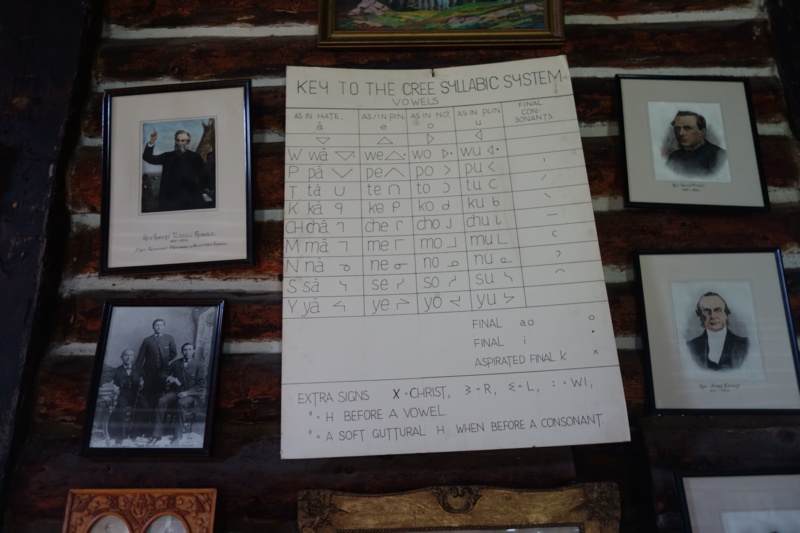 KEY TO THE CREE SYLLABIC SYSTEM
VOWELS
AS IN HATE, AS IN PIN, AS IN NO, AS IN PUN FINAL CON-SONANTS
ā e o u
ᐁ ᐃ ᐅ ᐊ
W wā ᐁ· we ᐃ· wo ᐅ· wu ᐊ·
P pā ᐯ pe ᐱ po ᐳ pu ᐸ ˈ
T tā ᑌ te ᑎ to ᑐ tu ᑕ ⸍
K kā ᑫ ke ᑭ ko ᑯ ku ᑲ ⸌
CH chā ᒉ che ᒋ cho ᒍ chu ᒐ –
M mā ᒣ me ᒥ mo ᒧ mu ᒪ ᑦ
N nā ᓀ ne ᓂ no ᓄ nu ᓇ ᐣ
S sā ᓭ se ᓯ so ᓱ su ᓴ ᐢ
Y yā ᔦ ye ᔨ yo ᔪ yu ᔭ
FINAL ao o
FINAL i •
ASPIRATED FINAL k x
EXTRA SIGNS X = CHRIST, ᕒ = R, ᕑ = L, : = WI,
" = H BEFORE A VOWEL
" = A SOFT GUTTURAL H WHEN BEFORE A CONSONANT